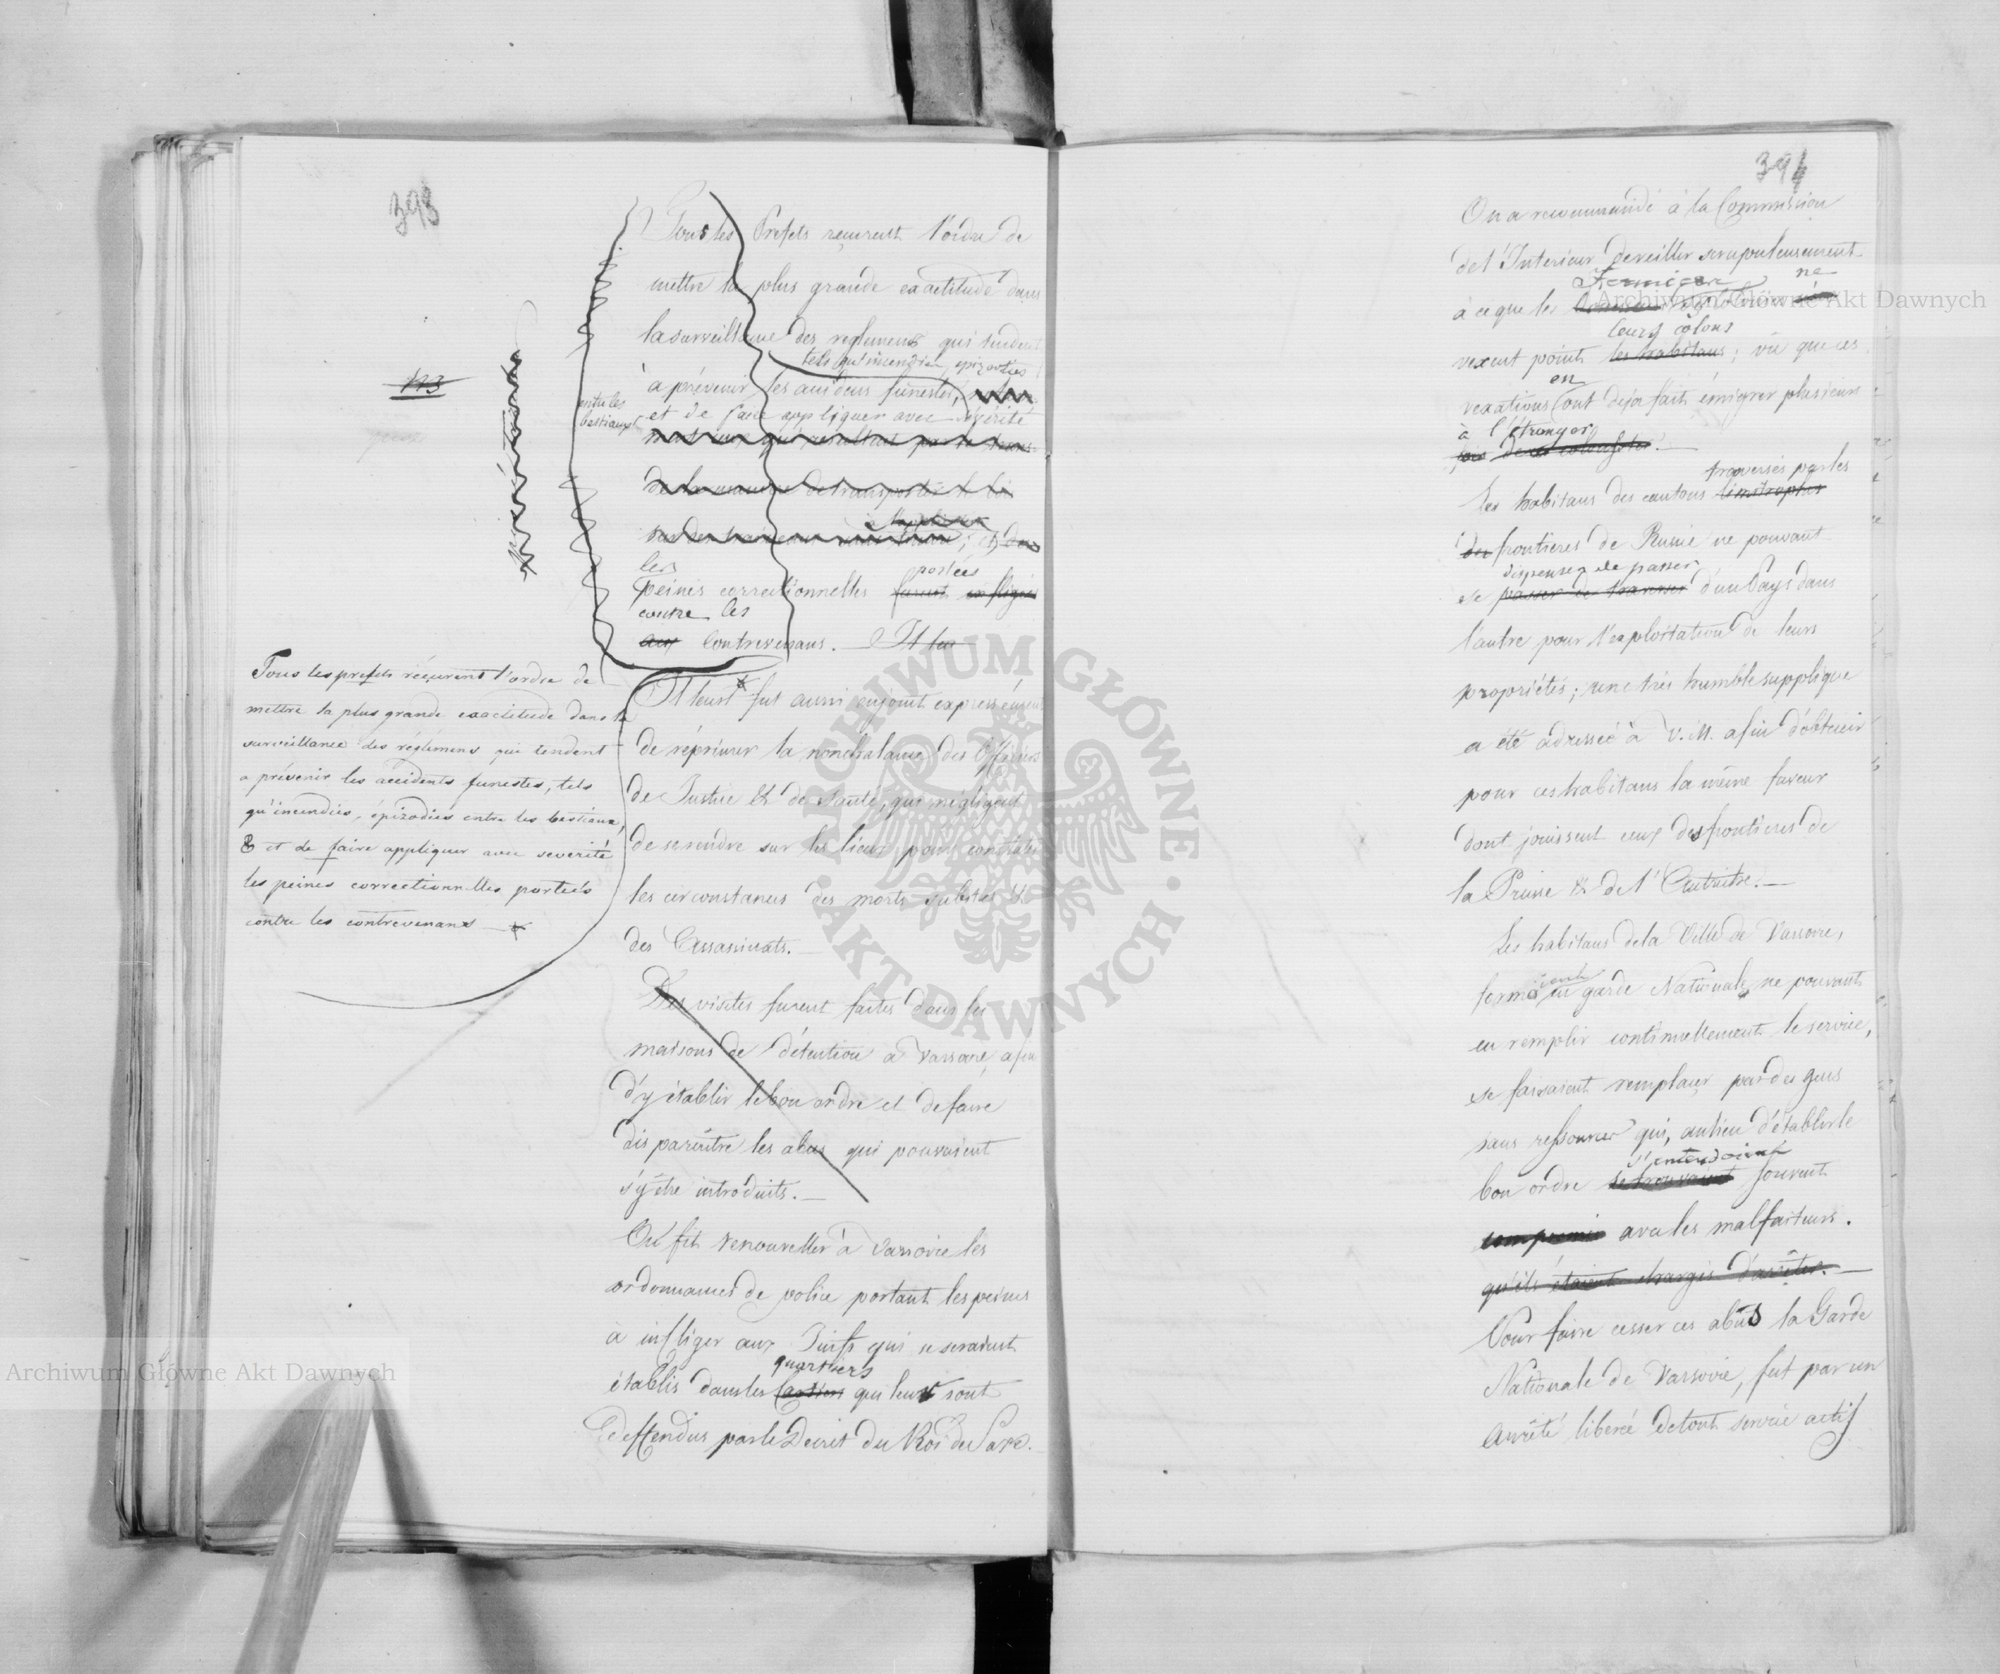 393
Tous les Prefets reçurent l'ordre de
mettre la plus grande exactitude dans
la surveillance des reglemens qui tendent
tels qu'incendies, epizooties
à prévenir les accidens funestes,
entre les
bestiaux
et de faire appliquer avec sévérité
les portées
peines correctionnelles furent infligées
contre les
aux contrevenans. Il leur
113
Tous les prefets reçurent l'ordre de
mettre la plus grande exactitude dans la
surveillance des réglémens qui tendent
a prévenir les accidents funestes, tels
qu'incendies, épizodies entre les bestiaux,
& et de faire appliquer avec severité
les peines correctionnelles porteés
contre les contrevenans
Il leur fut aussi enjoint expressément
de réprimer la nonchalance des Officiers
de Justice & de Santé, qui négligent
de se rendre sur les lieux pour
les circonstances des morts subites &
des Assassinats.
Des visites furent faites dans les
maisons de détention à Varsovie, afin
d'y établir le bon ordre et de faire
disparaître les abus qui pouvaient
s'y être introduits.
On fit renouveller à Varsovie les
ordonnances de police portant les peines
à infliger aux Juifs qui se seraient
quartiers
établis dans les qui leur sont
deffendus par le Decret du Roi de Saxe.
394
On a recommandé à la Commission
de l'Interieur de veiller scrupuleusement
Fermiers ne
à ce que les
leurs colons
vexent point les habitans; vu que ces
en
vexations ont deja fait émigrer plusieurs
à l'étranger
traversés par les
Les habitans des cantons limitrophes
des frontieres de Russie ne pouvant
dispenser de passer
se passer de traverser d'un Pays dans
l'autre pour l'exploitation de leurs
propriétés; une très humble supplique
a été adressée à V. M. afin d'obtenir
pour ces habitans la même faveur
dont jouissent ceux des frontieres de
la Prusse & de l'Autriche.
Les habitans de la Ville de Varsovie,
formant en garde Nationale, ne pouvant
en remplir continuellement le service,
se faisaient remplacer par des gens
sans ressources qui, au lieu d'établir le
s'entendoient
bon ordre se trouvaient souvent
avec les malfaiteurs.
qu'ils étaient chargés d'arrêter.
Pour faire cesser ces abus la Garde
Nationale de Varsovie, fut par un
Arrêté libérée de tout service actif
Archiwum Główne Akt Dawnych
Archiwum Główne Akt Dawnych
ARCHIWUM GŁÓWNE · AKT DAWNYCH ·